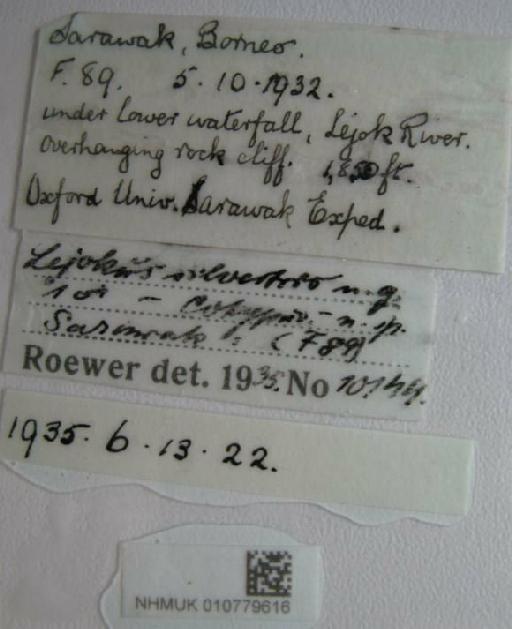 Sarawak, Borneo.
F. 89. 5.10.1932.
under lower waterfall, Lejok River.
overhanging rock cliff. 1,850 ft.
Oxford Univ. Sarawak Exped.
Lejokus silvestris n.g.
1 ♂ - n. sp.
Sarawak: (F 89)
Roewer det. 1935. No
1935. 6. 13. 22.
NHMUK 010779616